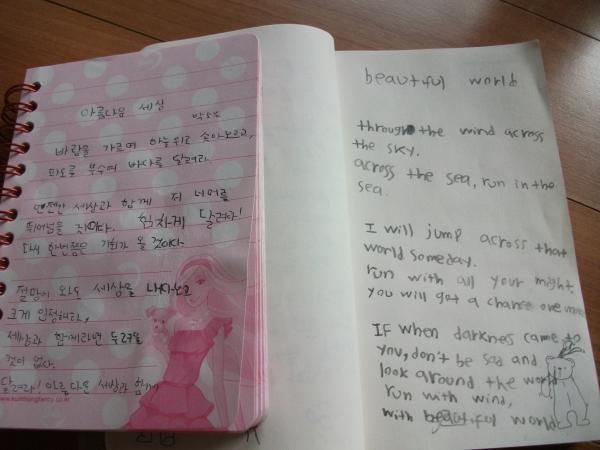 아름다음 세상
박소
바람을 가르며 하늘위로 솟아오르고,
파도를 부수며 바다를 달려라.
언젠간 세상과 함께 저 너머를
뛰어넘을 거다. 힘차게 달려라!
다시 한번쯤은 기회가 올 것이다.
절망이 와도 세상을 내다보고
크게 인정해라,
세상과 함께라면 두려울
것이 없다.
달려라! 아름다운 세상과 함께
www.kumhongfancy.co.kr
beautiful world
through the wind across
the sky.
across the sea, run in the
sea.
I will jump across that
world someday.
run with all your might.
you will got a chance one more
IF when darkness came to
you, don't be sad and
look around the world
run with wind,
with beautiful world